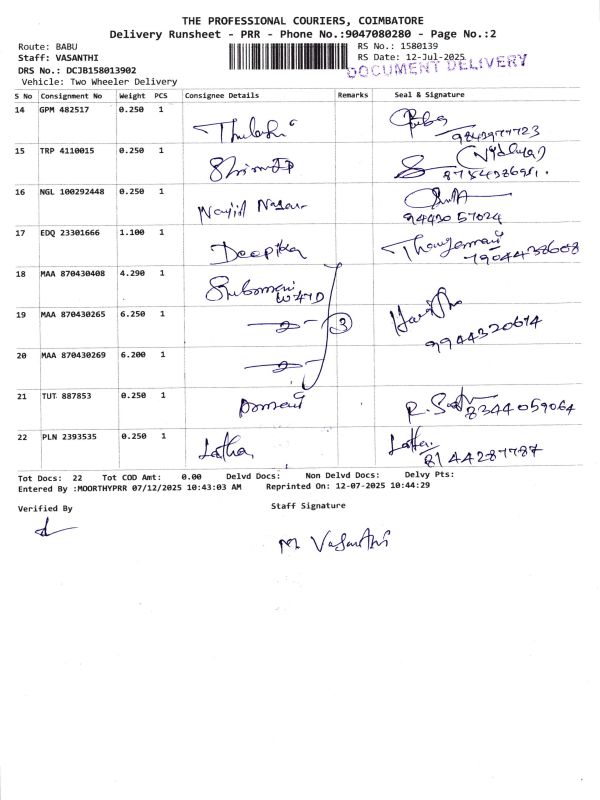 THE PROFESSIONAL COURIERS, COIMBATORE
Delivery Runsheet - PRR - Phone No.:9047080280 - Page No.:2
Route: BABU RS No.: 1580139
Staff: VASANTHI RS Date: 12-Jul-2025
DRS No.: DCJB158013902 DOCUMENT DELIVERY
Vehicle: Two Wheeler Delivery
S No Consignment No Weight PCS Consignee Details Remarks Seal & Signature
14 GPM 482517 0.250 1 Thulashi
15 TRP 4110015 0.250 1 (Vidhya)
16 NGL 100292448 0.250 1 9443057024
17 EDQ 23301666 1.100 1 Deepika 7904438608
18 MAA 870430408 4.290 1
19 MAA 870430265 6.250 1 3 9944320614
20 MAA 870430269 6.200 1
21 TUT 887853 0.250 1 8344059064
22 PLN 2393535 0.250 1 Latha Latha 8144287787
Tot Docs: 22 Tot COD Amt: 0.00 Delvd Docs: Non Delvd Docs: Delvy Pts:
Entered By :MOORTHYPRR 07/12/2025 10:43:03 AM Reprinted On: 12-07-2025 10:44:29
Verified By Staff Signature
M. Vasanthi